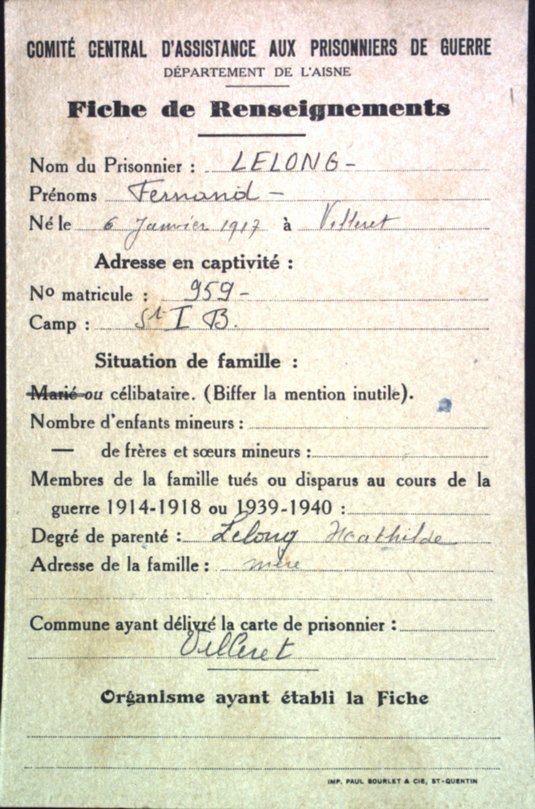 COMITÉ CENTRAL D'ASSISTANCE AUX PRISONNIERS DE GUERRE
DÉPARTEMENT DE L'AISNE
Fiche de Renseignements
Nom du Prisonnier : LELONG -
Prénoms Fernand -
Né le 6 Janvier 1917 à Villeret
Adresse en captivité :
No matricule : 959 -
Camp : St I B.
Situation de famille :
Marié ou célibataire. (Biffer la mention inutile).
Nombre d'enfants mineurs :
— de frères et sœurs mineurs :
Membres de la famille tués ou disparus au cours de la
guerre 1914-1918 ou 1939-1940 :
Degré de parenté : Lelong Mathilde
Adresse de la famille : mère
Commune ayant délivré la carte de prisonnier :
Villeret
Organisme ayant établi la Fiche
IMP. PAUL BOURLET & CIE, ST-QUENTIN